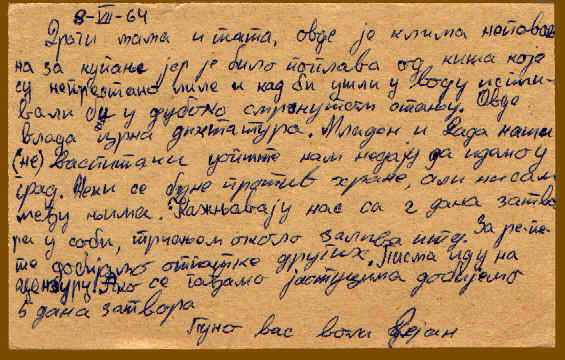 8-VII-64
Драги мама и тата, овде је клима неповољ
на за купање јер је било поплава од киша које
су непрестано лиле и кад би ушли у воду испли
вали би у дубоко смрзнутом стању. Овде
влада црна диктатура. Младен и Рада наши
(не) васпитачи уопште нам недају да идемо у
град. Неки се буне против хране, али нисам
међу њима. Кажњавају нас са 2 дана затво
ра у соби, трчањом около залива итд. За репе
те добијамо отпатке других. Писма иду на
цензуру! Ако се гађамо јастуцима добијемо
5 дана затвора
Пуно вас воли Дејан